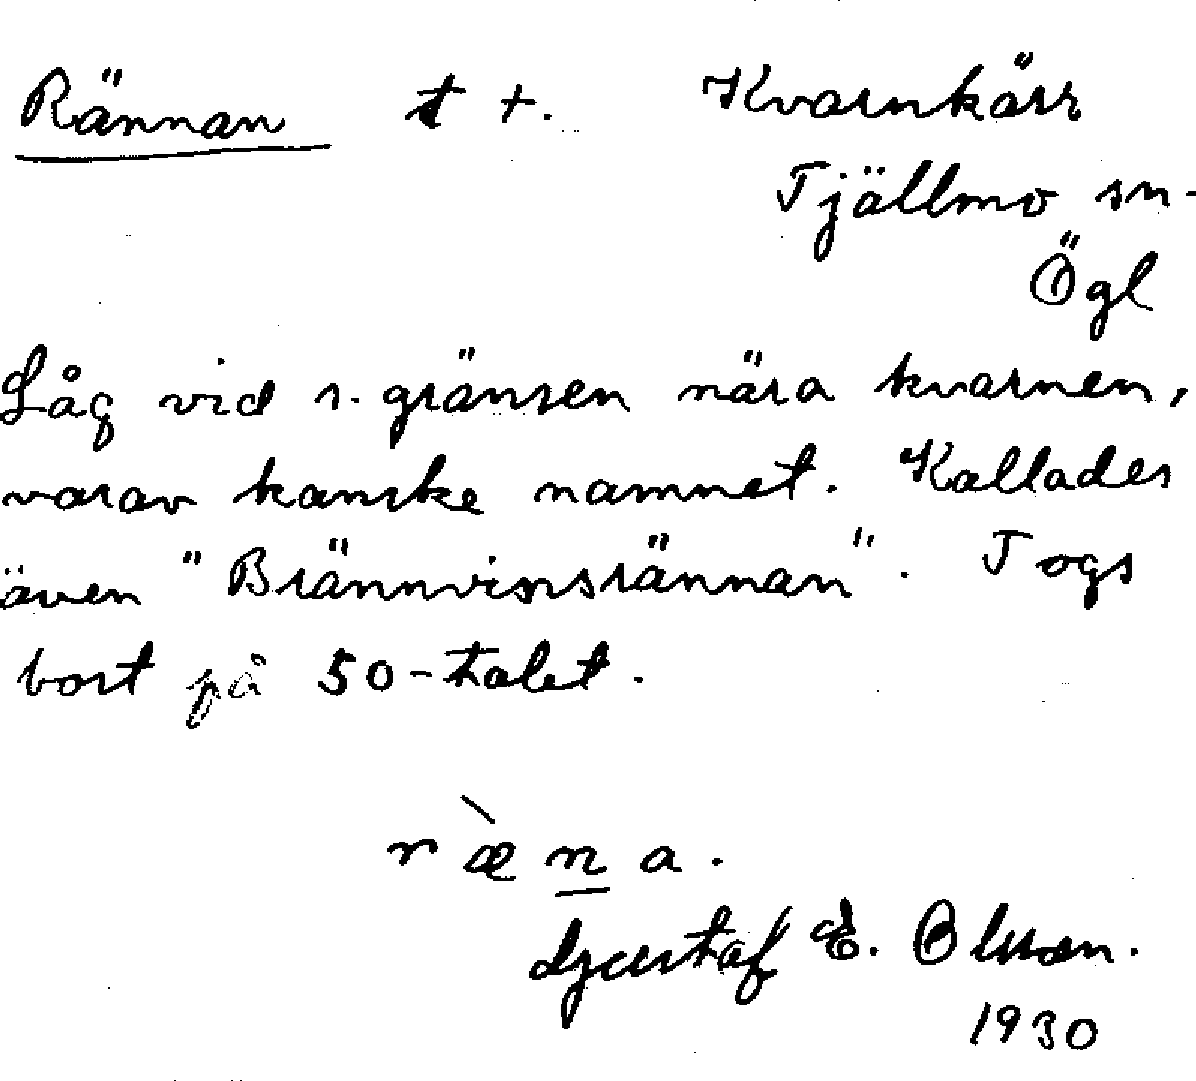 Rännan t +. Kvarnkärr
Tjällmo sn.
Ögl
Låg vid s. gränsen nära kvarnen,
varav kanske namnet. Kallades
även "Brännvinsrännan". Togs
bort på 50-talet.
ræ̀n̲a.
Gustaf E. Olsson.
1930